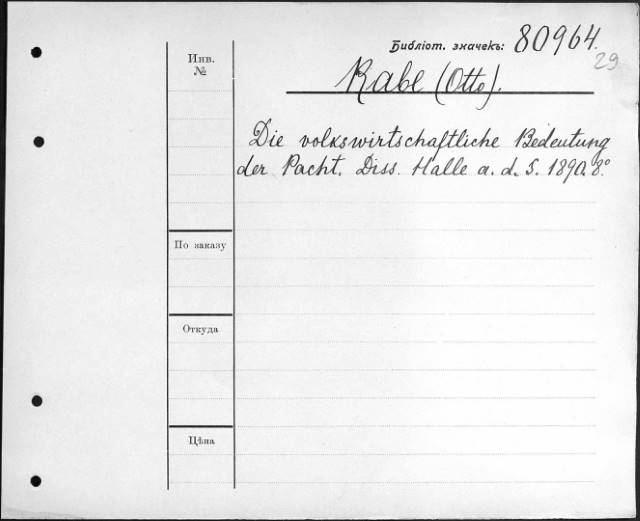 Библіот. значекъ: 80964.
29
Rabe (Otto).
Инв.
№
Die volkswirtschaftliche Bedeutung
der Pacht. Diss. Halle a. d. S. 1890. 8°.
По заказу
Откуда
Цѣна